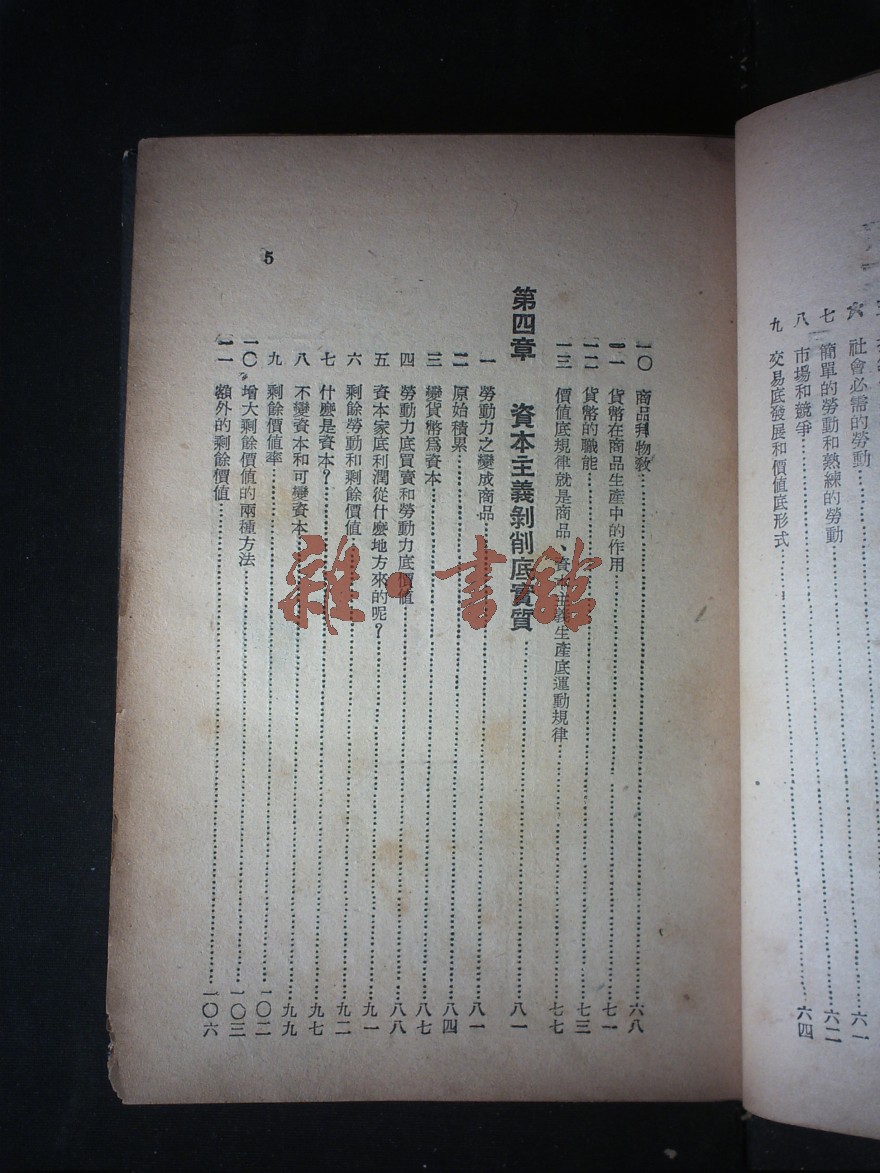 社會必需的勞動……六一
七 簡單的勞動和熟練的勞動……六二
八 市場和競爭……六四
九 交易底發展和價値底形式……
一〇 商品拜物敎……六八
一一 貨幣在商品生產中的作用……七一
一二 貨幣的職能……七三
一三 價値底規律就是商品、資本主義生產底運動規律……七七
第四章 資本主義剝削底實質……八一
一 勞動力之變成商品……八一
二 原始積累……八四
三 變貨幣爲資本……八七
四 勞動力底買賣和勞動力底價値……八八
五 資本家底利潤從什麽地方來的呢？……九一
六 剩餘勞動和剩餘價値……九二
七 什麽是資本？……九七
八 不變資本和可變資本……九九
九 剩餘價値率……一〇二
一〇 增大剩餘價値的兩種方法……一〇三
一一 額外的剩餘價値……一〇六
5
雜·書館